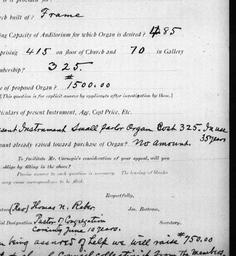 rch built of? Frame
ing Capacity of Auditorium for which Organ is desired? 485
prising 415 on floor of Church and 70 in Gallery
mbership? 325.
e of proposed Organ? $1500.00
[This question is for explicit answer by applicants after investigation by them.]
ticulars of present Instrument, Age, Cost Price, Etc.
sent Instrument Small parlor Organ Cost 325. In use
35 years
unt already raised toward purchase of Organ? No amount.
To facilitate Mr. Carnegie's consideration of your appeal, will you
oblige by filling in the above?
Precise answer to each question is necessary. The leaving of blanks
may cause correspondence to be filed.
Respectfully,
(Rev) Thomas N. Reber
Jas. Bertram,
Pastor of Congregation
Secretary.
Coming June 10 years.
n being assured of help we will raise $750.00